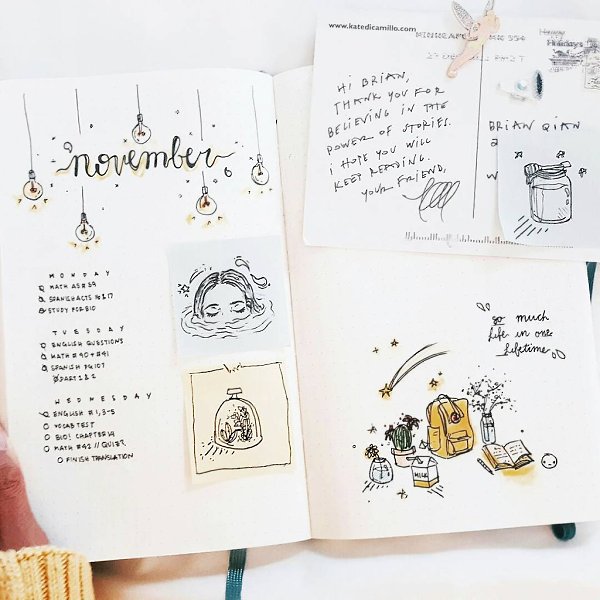 november
MONDAY
MATH A5 #39
SPANISH ACTS #217
STUDY FOR BIO
TUESDAY
ENGLISH QUESTIONS
MATH #40+#41
SPANISH PG 107
PART 1 & 2
WEDNESDAY
ENGLISH #1, 3-5
VOCAB TEST
BIO: CHAPTER 14
MATH #42 // QUIZ?
FINISH TRANSLATION
www.katedicamillo.com
HI BRIAN,
THANK YOU FOR
BELIEVING IN THE
POWER OF STORIES.
I HOPE YOU WILL
KEEP READING.
YOUR FRIEND,
BRIAN QIAN
so much
life in one
lifetime
MILK